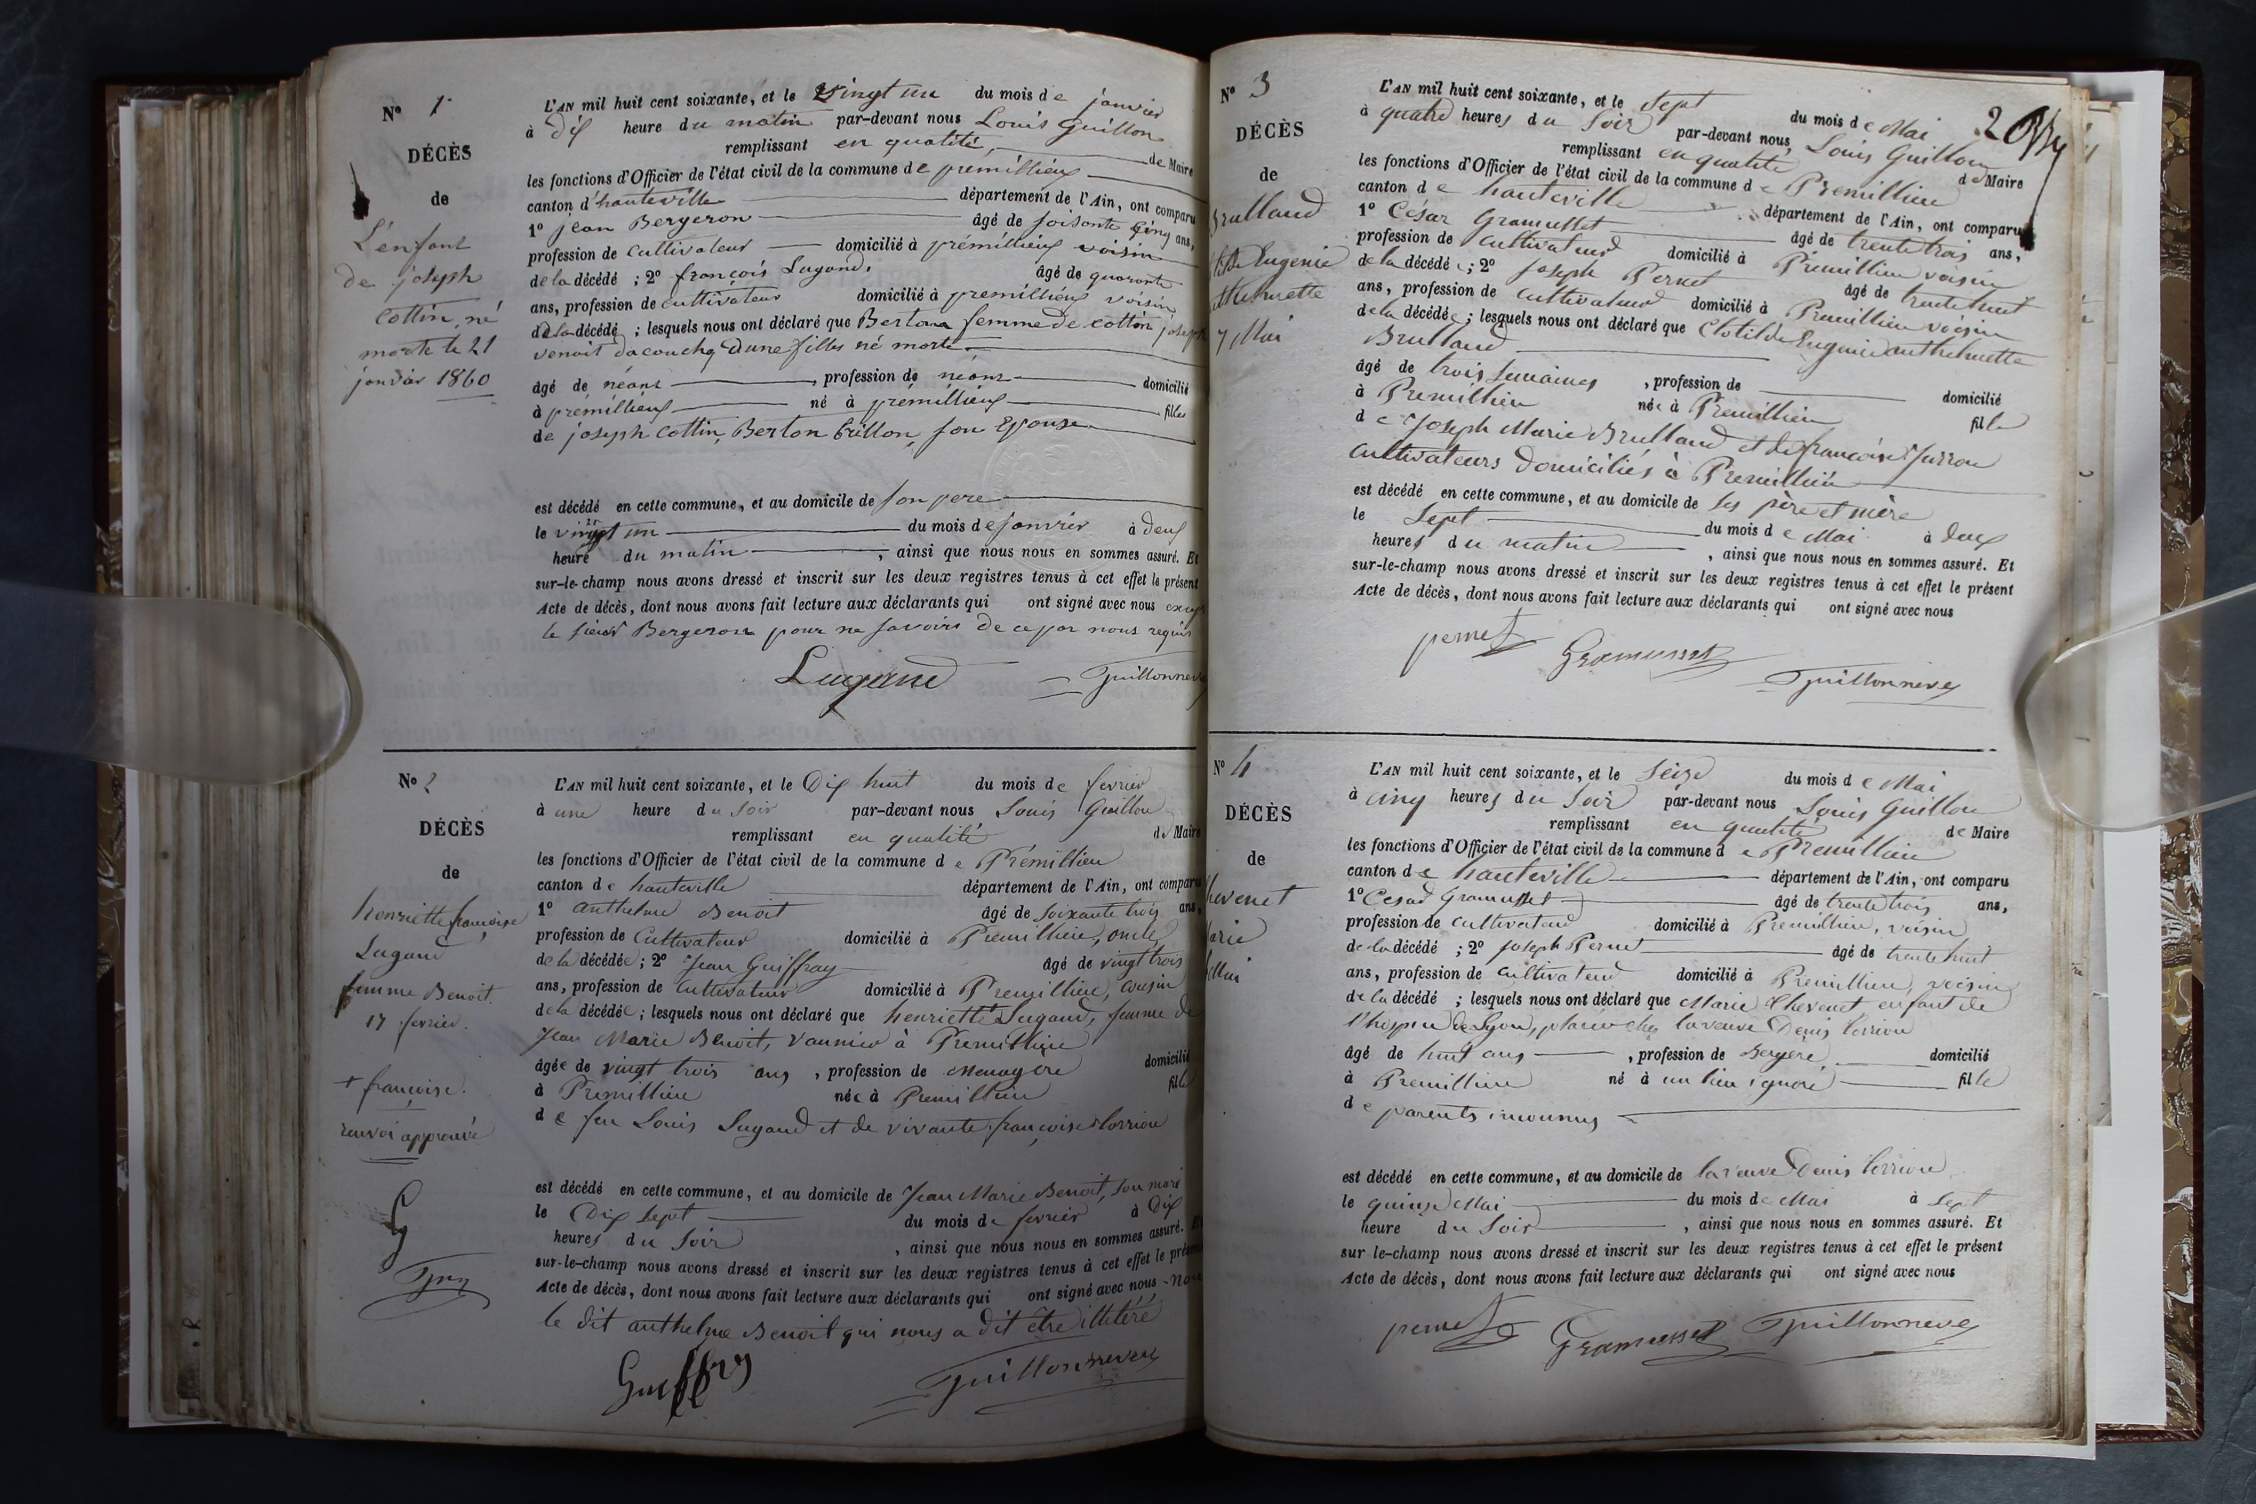 N° 1
DÉCÈS
de
L'enfant
de joseph
cottin, né
morte le 21
janvier 1860
L'AN mil huit cent soixante, et le vingt un du mois de janvier
à dix heure du matin par-devant nous Louis Guillon
remplissant en qualité de Maire
les fonctions d'Officier de l'état civil de la commune de prémillieux
canton d'hauteville département de l'Ain, ont comparu
1° jean Bergeron âgé de soisonte cinq ans,
profession de cultivateur domicilié à prémillieux voisin
de la décédé ; 2° françois Lugand, âgé de quaronte
ans, profession de cultivateur domicilié à premillieux voisin
de la décédé ; lesquels nous ont déclaré que Berton femme de cottin joseph
venoit dacouché dune filles né morte
âgé de néant, profession de néant domicilié
à prémillieux né à prémillieux filles
de joseph Cottin, Berton son Epouse
est décédé en cette commune, et au domicile de son pere
le vingt un du mois de janvier à deux
heure du matin, ainsi que nous nous en sommes assuré. Et
sur-le-champ nous avons dressé et inscrit sur les deux registres tenus à cet effet le présent
Acte de décès, dont nous avons fait lecture aux déclarants qui ont signé avec nous
le sieur Bergeron pour ne savoir de ce par nous requis
Lugand Guillonneveu
N° 2
DÉCÈS
de
henriette françoise
Lugand
femme Benoit
17 fevrier.
+ françoise.
renvoi approuvé
G
L'AN mil huit cent soixante, et le Dix huit du mois de fevrier
à une heure du soir par-devant nous Louis Guillon
remplissant en qualité de Maire
les fonctions d'Officier de l'état civil de la commune de Prémillieu
canton de hauteville département de l'Ain, ont comparu
1° anthelme Benoit âgé de soixante trois ans,
profession de Cultivateur domicilié à Premillieu, oncle
de la décédée ; 2° Jean Guiffray âgé de vingt trois
ans, profession de Cultivateur domicilié à Premillieu, cousin
de la décédée ; lesquels nous ont déclaré que henriette + Lugand, femme de
Jean Marie Benoit, vannier à Premillieu
âgée de vingt trois ans, profession de Menagère domicilié
à Premillieu née à Premillieu fille
de feu Louis Lugand et de vivante françoise Lorriou
est décédé en cette commune, et au domicile de Jean Marie Benoit, son mari
le Dix sept du mois de fevrier à Dix
heures du soir, ainsi que nous nous en sommes assuré. Et
sur-le-champ nous avons dressé et inscrit sur les deux registres tenus à cet effet le présent
Acte de décès, dont nous avons fait lecture aux déclarants qui ont signé avec nous - non
le dit anthelme Benoit qui nous a dit être illitéré
Guillonneveu
N° 3
DÉCÈS
de
Brulland
Eugenie
anthelmette
7 Mai
2
L'AN mil huit cent soixante, et le sept du mois de Mai
à quatre heures du soir par-devant nous Louis Guillon
remplissant en qualité de Maire
les fonctions d'Officier de l'état civil de la commune de Premillieu
canton de hauteville département de l'Ain, ont comparu
1° César Gramusset âgé de trente trois ans,
profession de cultivateur domicilié à Premillieu voisin
de la décédé ; 2° Joseph Pernet âgé de trente huit
ans, profession de cultivateur domicilié à Premillieu voisin
de la décédée ; lesquels nous ont déclaré que Clotilde Eugenie anthelmette
Brulland
âgé de trois semaines, profession de domicilié
à Premillieu née à Premillieu fille
de Joseph Marie Brulland et de françoise
cultivateurs domiciliés à Premillieu
est décédé en cette commune, et au domicile de ses père et mère
le sept du mois de Mai à deux
heures du matin, ainsi que nous nous en sommes assuré. Et
sur-le-champ nous avons dressé et inscrit sur les deux registres tenus à cet effet le présent
Acte de décès, dont nous avons fait lecture aux déclarants qui ont signé avec nous
pernet Gramusset Guillonneveu
N° 4
DÉCÈS
de
Chevenet
Marie
Mai
L'AN mil huit cent soixante, et le seize du mois de Mai
à cinq heures du soir par-devant nous Louis Guillon
remplissant en qualité de Maire
les fonctions d'Officier de l'état civil de la commune de Premillieu
canton de hauteville département de l'Ain, ont comparu
1° Cesar Gramusset âgé de trente trois ans,
profession de cultivateur domicilié à Premillieu, voisin
de la décédé ; 2° joseph Pernet âgé de trente huit
ans, profession de cultivateur domicilié à Premillieu, voisin
de la décédé ; lesquels nous ont déclaré que Marie Chevenet enfant de
l'hospice de Lyon, placée chez la veuve Denis Lorriou
âgé de huit ans, profession de Bergère domicilié
à Premillieu né à un lieu ignoré fille
de parents inconnus
est décédé en cette commune, et au domicile de la veuve Denis Lorriou
le quinze Mai du mois de Mai à sept
heure du soir, ainsi que nous nous en sommes assuré. Et
sur le-champ nous avons dressé et inscrit sur les deux registres tenus à cet effet le présent
Acte de décès, dont nous avons fait lecture aux déclarants qui ont signé avec nous
pernet Gramusset Guillonneveu